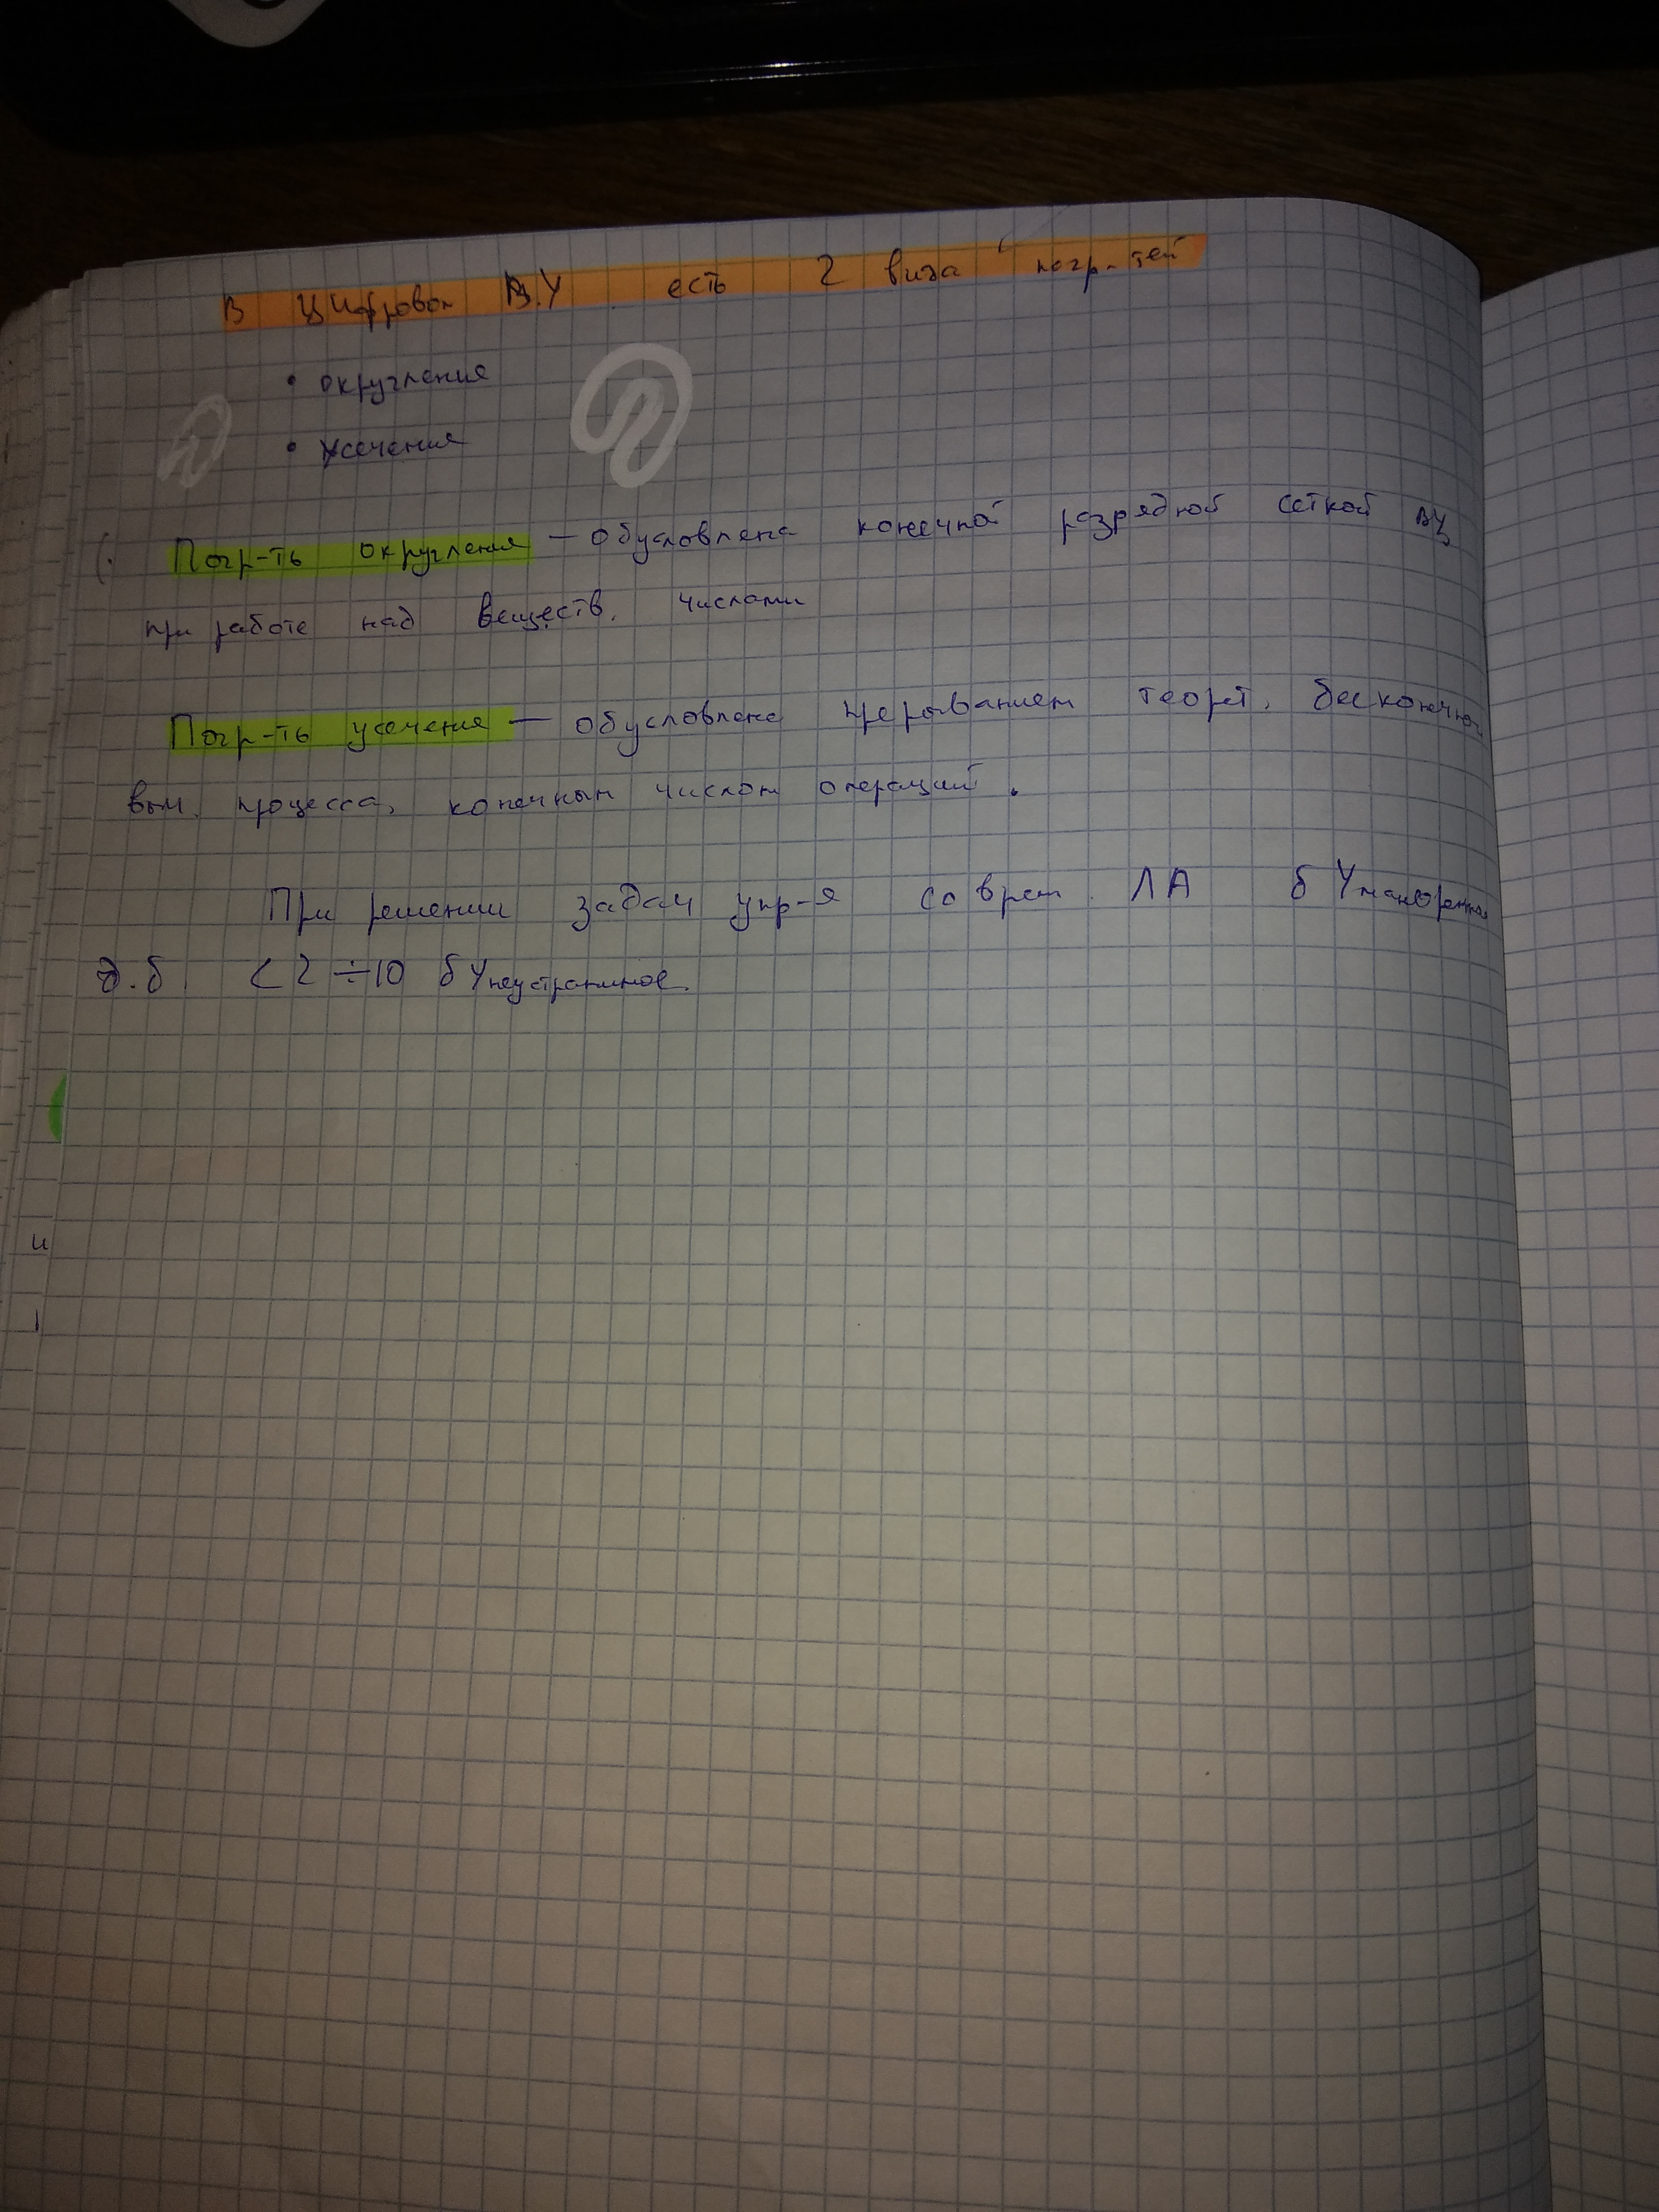 В цифровом В.У есть 2 вида погр-тей
• округления
• усечения
Погр-ть округления — обусловлена конечной разрядной сеткой ВУ
при работе над веществ. числами
Погр-ть усечения — обусловлена прерыванием теорет. бесконечно
выч. процесса, конечным числом операций.
При решении задач упр-я соврем. ЛА δY
д.б. < 2 ÷ 10 δYнеустранимое.
и